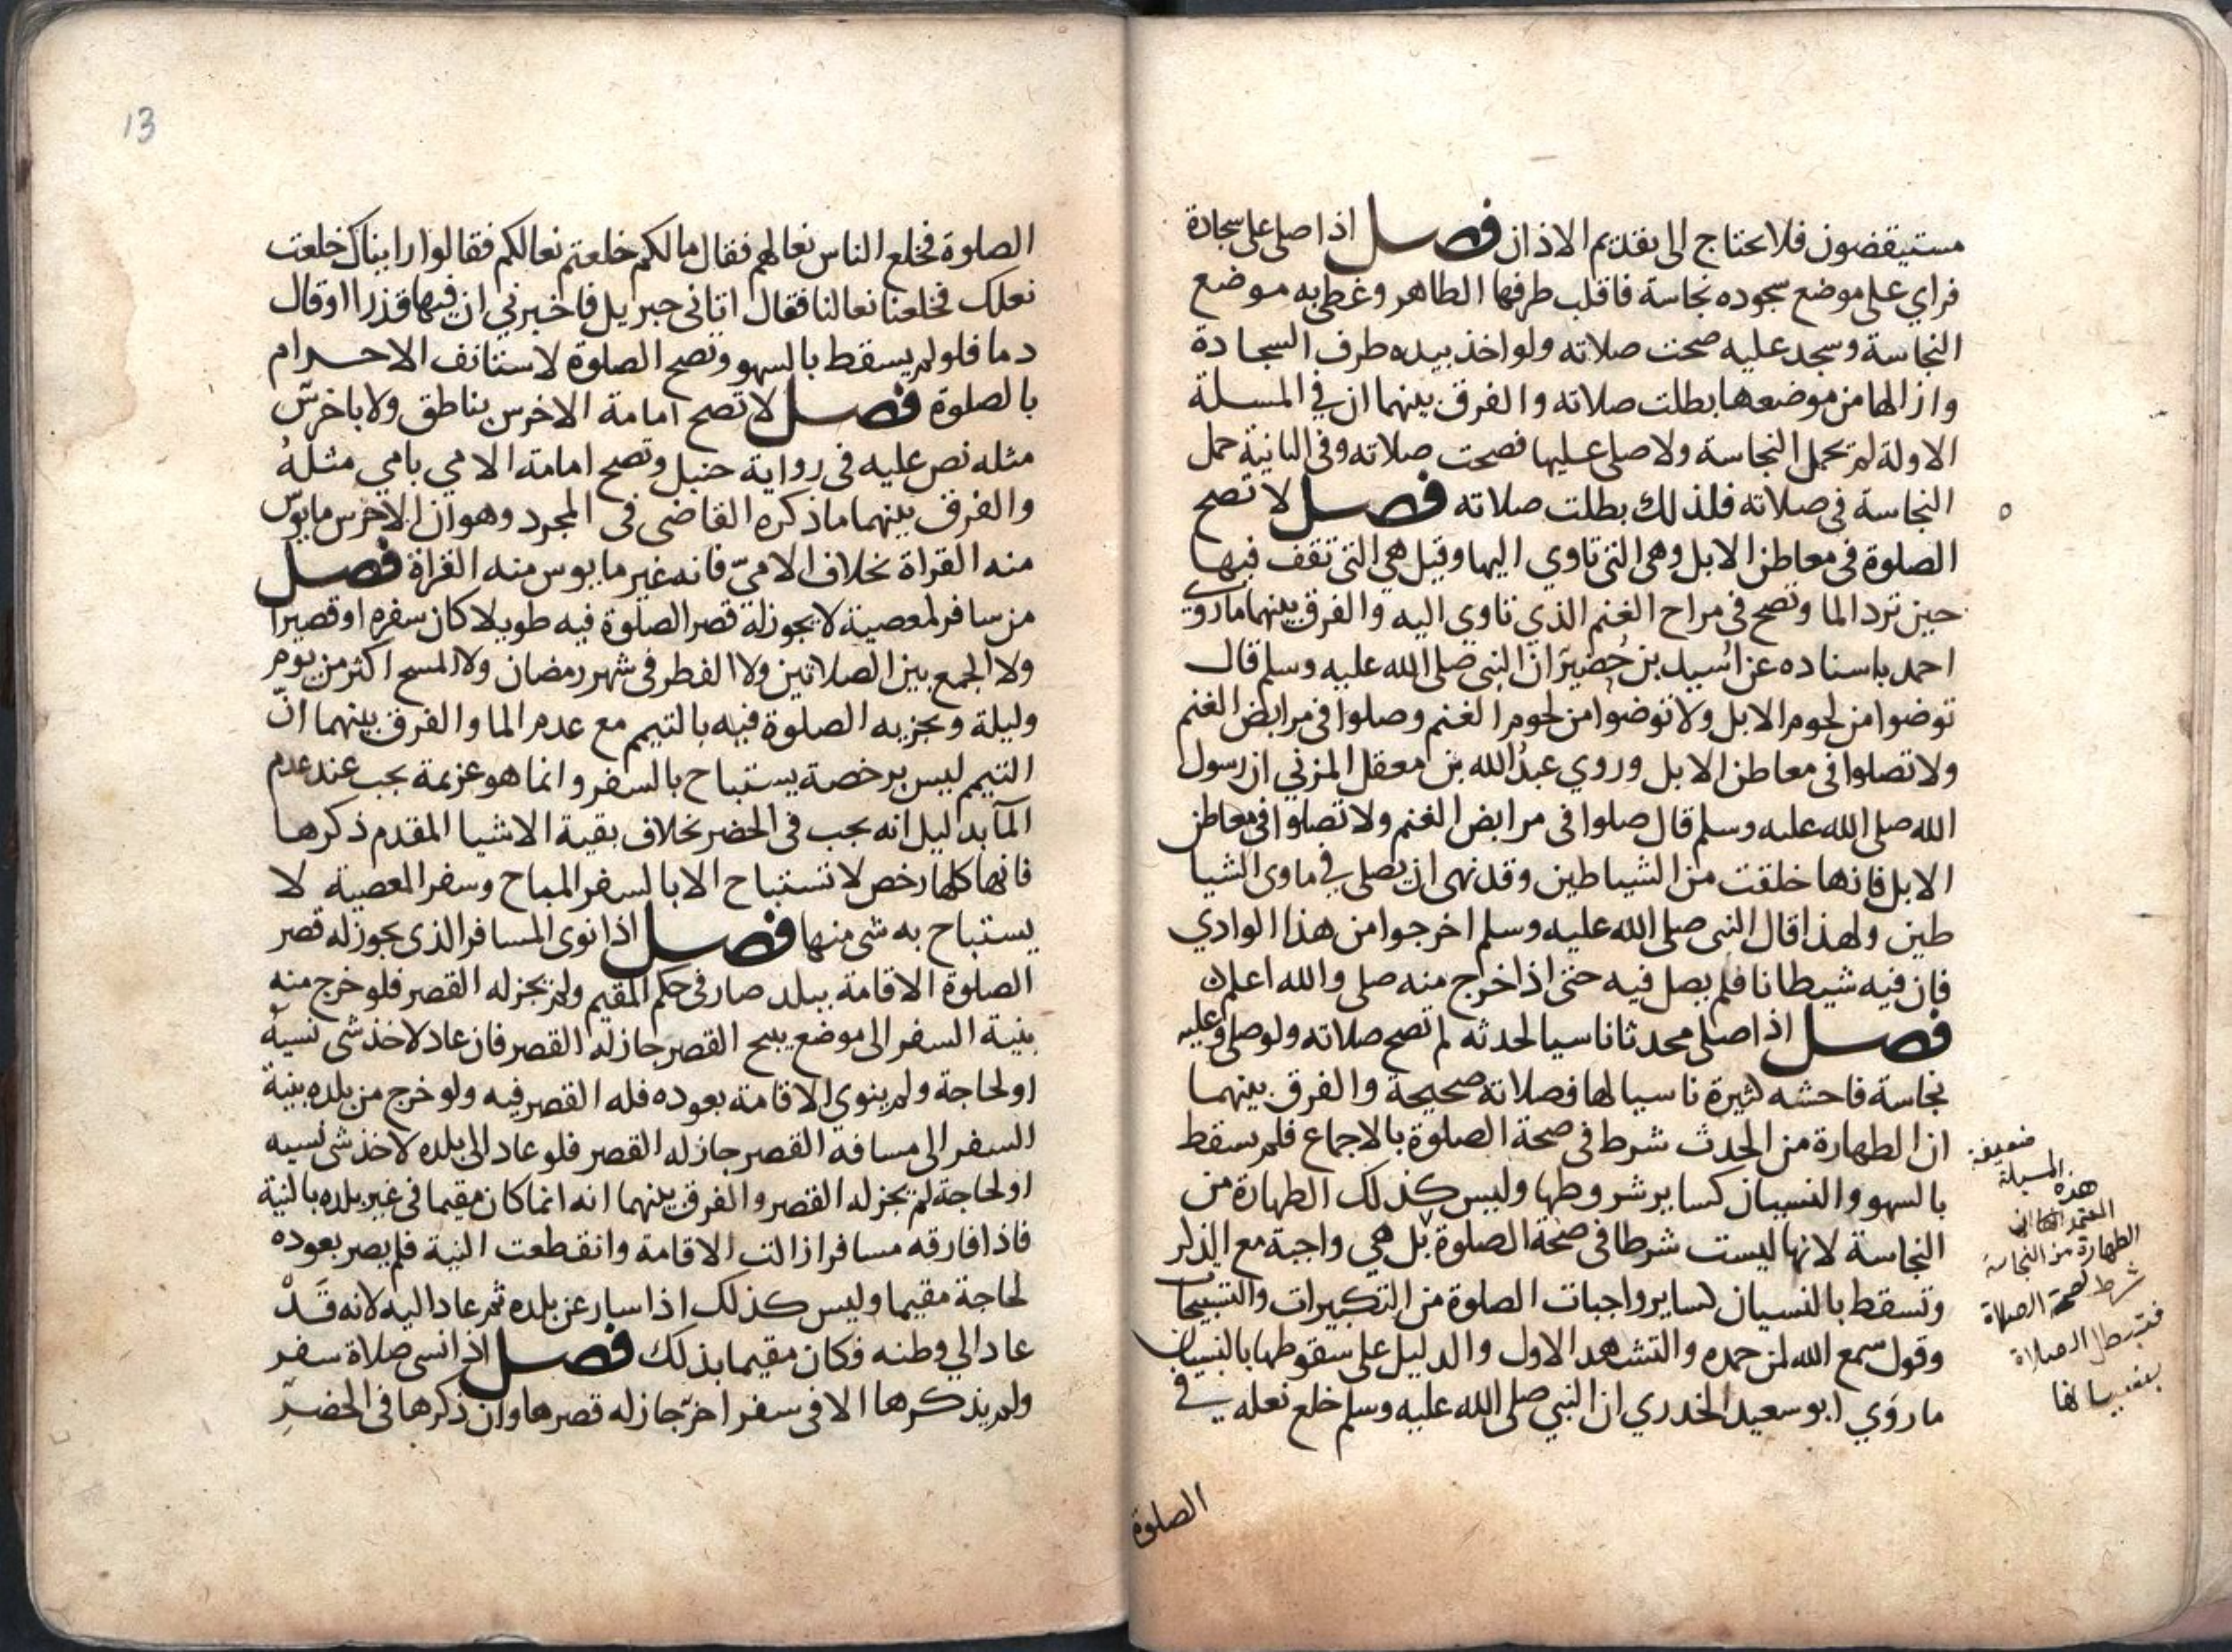 مستيقضون فلا يحتاج الى تقديم الاذان فصل اذا صلى على سجادة
فراي على موضع سجوده نجاسة فاقلب طرفها الطاهر وغطى به موضع
النجاسة وسجد عليه صحت صلاته ولو اخذ بيده طرف السجادة
وازالها من موضعها بطلت صلاته والفرق بينهما ان في المسلة
الاولة لم يحمل النجاسة ولا صلى عليها فصحت صلاته وفى الثانية حمل
النجاسة فى صلاته فلذلك بطلت صلاته فصل لا تصح
الصلوة فى معاطن الابل وهى التى تاوي اليها وقيل هي التى تقف فيها
حين ترد الما وتصح فى مراح الغنم الذي تاوي اليه والفرق بينهما ما روى
احمد باسناده عن اسيد بن حُضير ان النبى صلى الله عليه وسلم قال
توضوا من لحوم الابل ولا توضوا من لحوم الغنم وصلوا فى مرابض الغنم
ولا تصلوا فى معاطن الابل وروي عبدُ الله بن معقل المزني ان رسول
الله صلى الله عليه وسلم قال صلوا فى مرابض الغنم ولا تصلوا فى معاطن
الابل فانها خلقت من الشياطين وقد نهى ان يصلى في ماوى الشيا
طين ولهذا قال النبى صلى الله عليه وسلم اخرجوا من هذا الوادي
فان فيه شيطانا فلم يصل فيه حتى اذا خرج منه صلى والله اعلم
فصل اذا صلى محدثا ناسيا لحدثه لم تصح صلاته ولو صلى وعليه
نجاسة فاحشه كثيرة ناسيا لها فصلاته صحيحة والفرق بينهما
ان الطهارة من الحدث شرط فى صحة الصلوة بالاجماع فلم يسقط
بالسهو والنسيان كساير شروطها وليس كذلك الطهارة من
النجاسة لانها ليست شرطا فى صحة الصلوة بل هي واجبة مع الذكر
وتسقط بالنسيان كساير واجبات الصلوة من التكبيرات والتسبيحات
وقول سمع الله لمن حمده والتشهد الاول والدليل على سقوطها بالنسيان
ما روي ابو سعيد الخدري ان النبي صلى الله عليه وسلم خلع نعله في
الصلوة
ضعيف
هذه المسيلة
المعتمد ان
الطهارة من النجاسة
شرط لصحة الصلاة
فتبطل الصلاة
بنسيانها
13
الصلوة فخلع الناس نعالهم فقال مالكم خلعتم نعالكم فقالوا رايناك خلعت
نعلك فخلعنا نعالنا فقال اتانى جبريل فاخبرني ان فيها قذرا او قال
دما فلو لم يسقط بالسهو وتصح الصلوة لاستانف الاحرام
بالصلوة فصل لا تصح امامة الاخرس بناطق ولا باخرس
مثله نص عليه فى رواية حنبل وتصح امامة الامي بامي مثلهُ
والفرق بينهما ما ذكره القاضى فى المجرد وهو ان الاخرس مايوس
منه القراة بخلاف الامىّ فانه غير مايوس منه القراة فصل
من سافر لمعصية لا يجوز له قصر الصلوة فيه طويلا كان سفره او قصيرا
ولا الجمع بين الصلاتين ولا الفطر فى شهر رمضان ولا المسح اكثر من يوم
وليلة ويجزيه الصلوة فيه بالتيمم مع عدم الما والفرق بينهما انّ
التيمم ليس برخصة يستباح بالسفر وانما هو عزيمة يجب عند عدم
المآ بدليل انه يجب فى الحضر بخلاف بقية الاشيا المقدم ذكرها
فانها كلها رخص لا تستباح الا بالسفر المباح وسفر المعصية لا
يستباح به شى منها فصل اذا نوى المسافر الذى يجوز له قصر
الصلوة الاقامة ببلد صار فى حكم المقيم ولم يجز له القصر فلو خرج منه
بنية السفر الى موضع يبيح القصر جاز له القصر فان عاد لاخذ شى نسيه
او لحاجة ولم ينوي الاقامة بعوده فله القصر فيه ولو خرج من بلده بنية
السفر الى مسافة القصر جاز له القصر فلو عاد الى بلده لاخذ شى نسيه
او لحاجة لم يجز له القصر والفرق بينهما انه انما كان مقيما فى غير بلده بالنية
فاذا فارقه مسافرا زالت الاقامة وانقطعت النية فلم يصر بعوده
لحاجة مقيما وليس كذلك اذا سار عن بلده ثم عاد اليه لانه قَدْ
عاد الي وطنه فكان مقيما بذلك فصل اذا نسى صلاة سفر
ولم يذكرها الا فى سفر اخر جاز له قصرها وان ذكرها فى الحضرِ